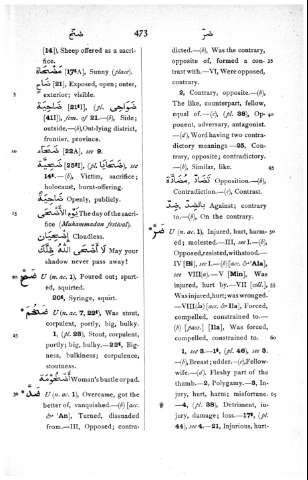 ضخم
473
ضر
[14]), Sheep offered as a sacri-
fice.
مَضْحَاة [17tA], Sunny (place).
ضَاحٍ [21], Open, exposed, outer,
exterior; visible.
ضَاحِيَة [21t], (pl. ضَوَاحِي
[41]), fem. of 21.—(b), Side;
outside,—(b),Out-lying district,
frontier, province.
[22A], see 2.
[25tI], (pl. ضَحَايَا), see
14t.—(b), Victim, sacrifice;
holocaust, burnt-offering.
ضَاحِيَةً Openly, publicly.
يَوْمُ الأَضْحَى The day of the sacri-
fice (Muhammadan festival).
Cloudless.
لا أَضْحَى اللهُ ظِلَّكَ May your
shadow never pass away!
U (n. ac. 1), Poured out; spurt-
ed, squirted.
20t, Syringe, squirt.
ضَخُمَ U (n. ac. 7, 22t), Was stout,
corpulent, portly, big, bulky.
1, (pl. 23), Stout, corpulent,
portly; big, bulky.—22t, Big-
ness, bulkiness; corpulence,
stoutness.
Woman's bustle or pad.
ضَدّ U (n. ac. 1), Overcame, got the
better of, vanquished.—(b) [acc.
& 'An], Turned, dissuaded
from.—III, Opposed; contra-
dicted.—(b), Was the contrary,
opposite of, formed a con-
trast with.—VI, Were opposed,
contrary.
2, Contrary, opposite.—(b),
The like, counterpart, fellow,
equal of.—(c), (pl. 38), Op-
ponent, adversary, antagonist.
—(d), Word having two contra-
dictory meanings —25, Con-
trary, opposite; contradictory.
—(b), Similar, like.
تَضَادّ , مُضَادَّة Opposition.—(b),
Contradiction.—(c), Contrast.
ضِدّ , بِالضِّدّ Against; contrary
to.—(b), On the contrary.
ضَرَّ U (n. ac. 1), Injured, hurt, harm-
ed; molested.—III, see I.—(b),
Opposed, resisted, withstood.—
IV [Bi], see I.—(b) [acc. & 'Ala],
see VIII(a).—V [Min], Was
injured, hurt by.—VII [coll.],
Was injured, hurt; was wronged.
—VIII(a) [acc. & Ila], Forced,
compelled, constrained to.—
(b) [pass.] [Ila], Was forced,
compelled, constrained to.
1, see 3.—1t, (pl. 46), see 3.
—(b), Breast; udder.—(c), Fellow-
wife.—(d), Fleshy part of the
thumb.—2, Polygamy.—3, In-
jury, hurt, harm; misfortune.
—4, (pl. 38), Detriment, in-
jury, damage; loss.—17t, (pl.
44), see 4.—21, Injurious, hurt-